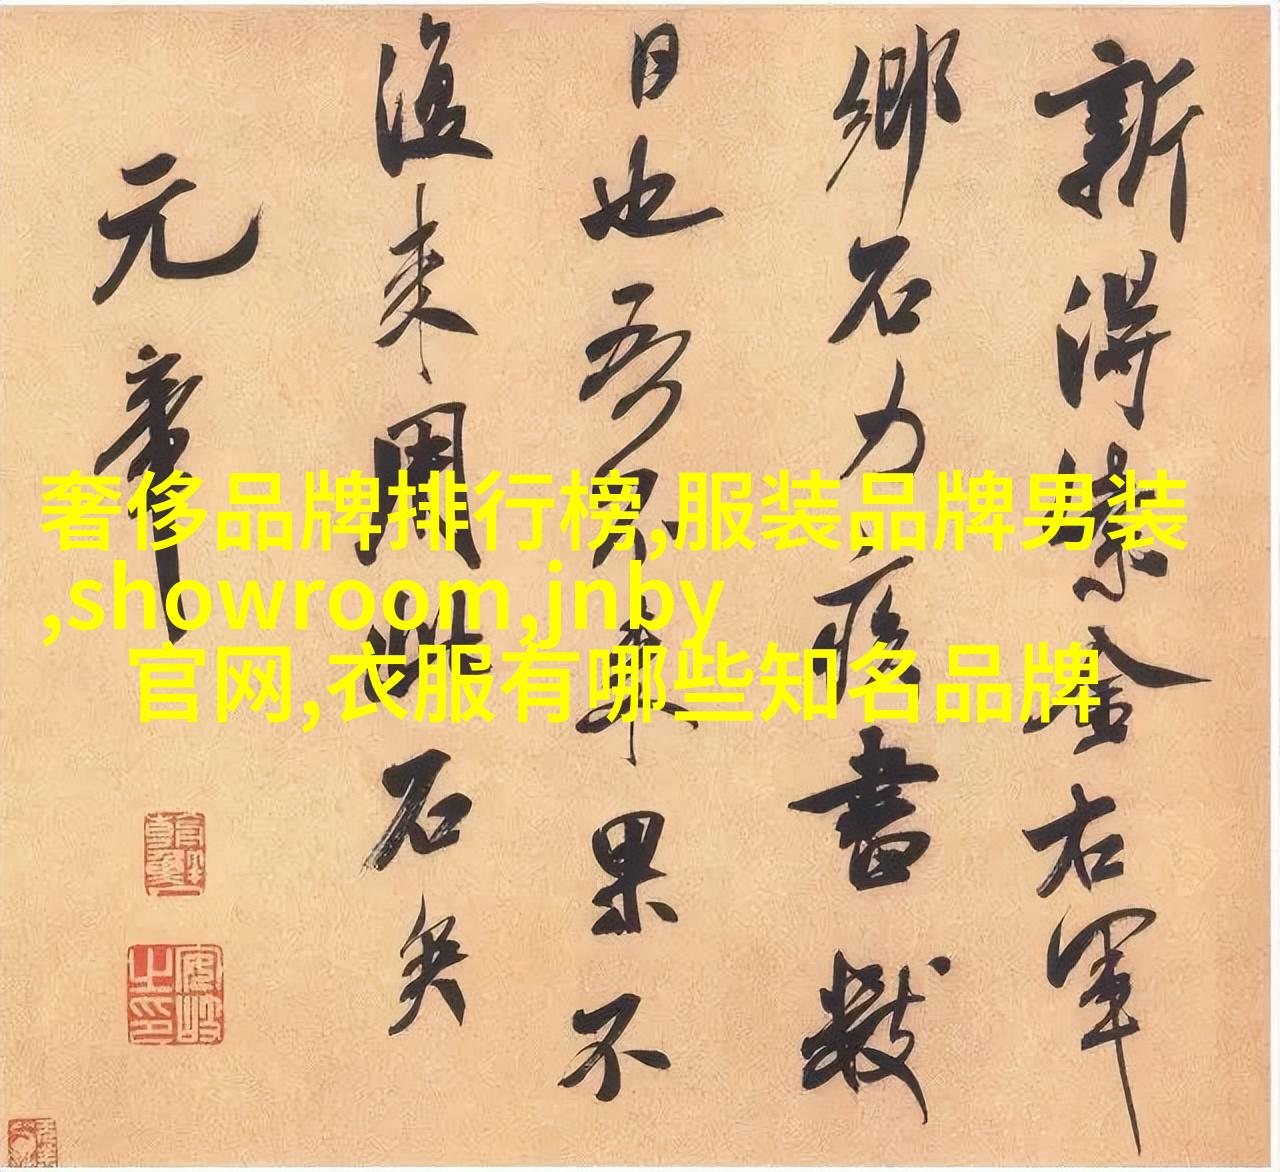 新得紫金右軍
鄉石力疾書數
日也吾不來果不
復來用此石矣
元章
奢侈品牌排行榜,服装品牌男装
,showroom,jnby
官网,衣服有哪些知名品牌